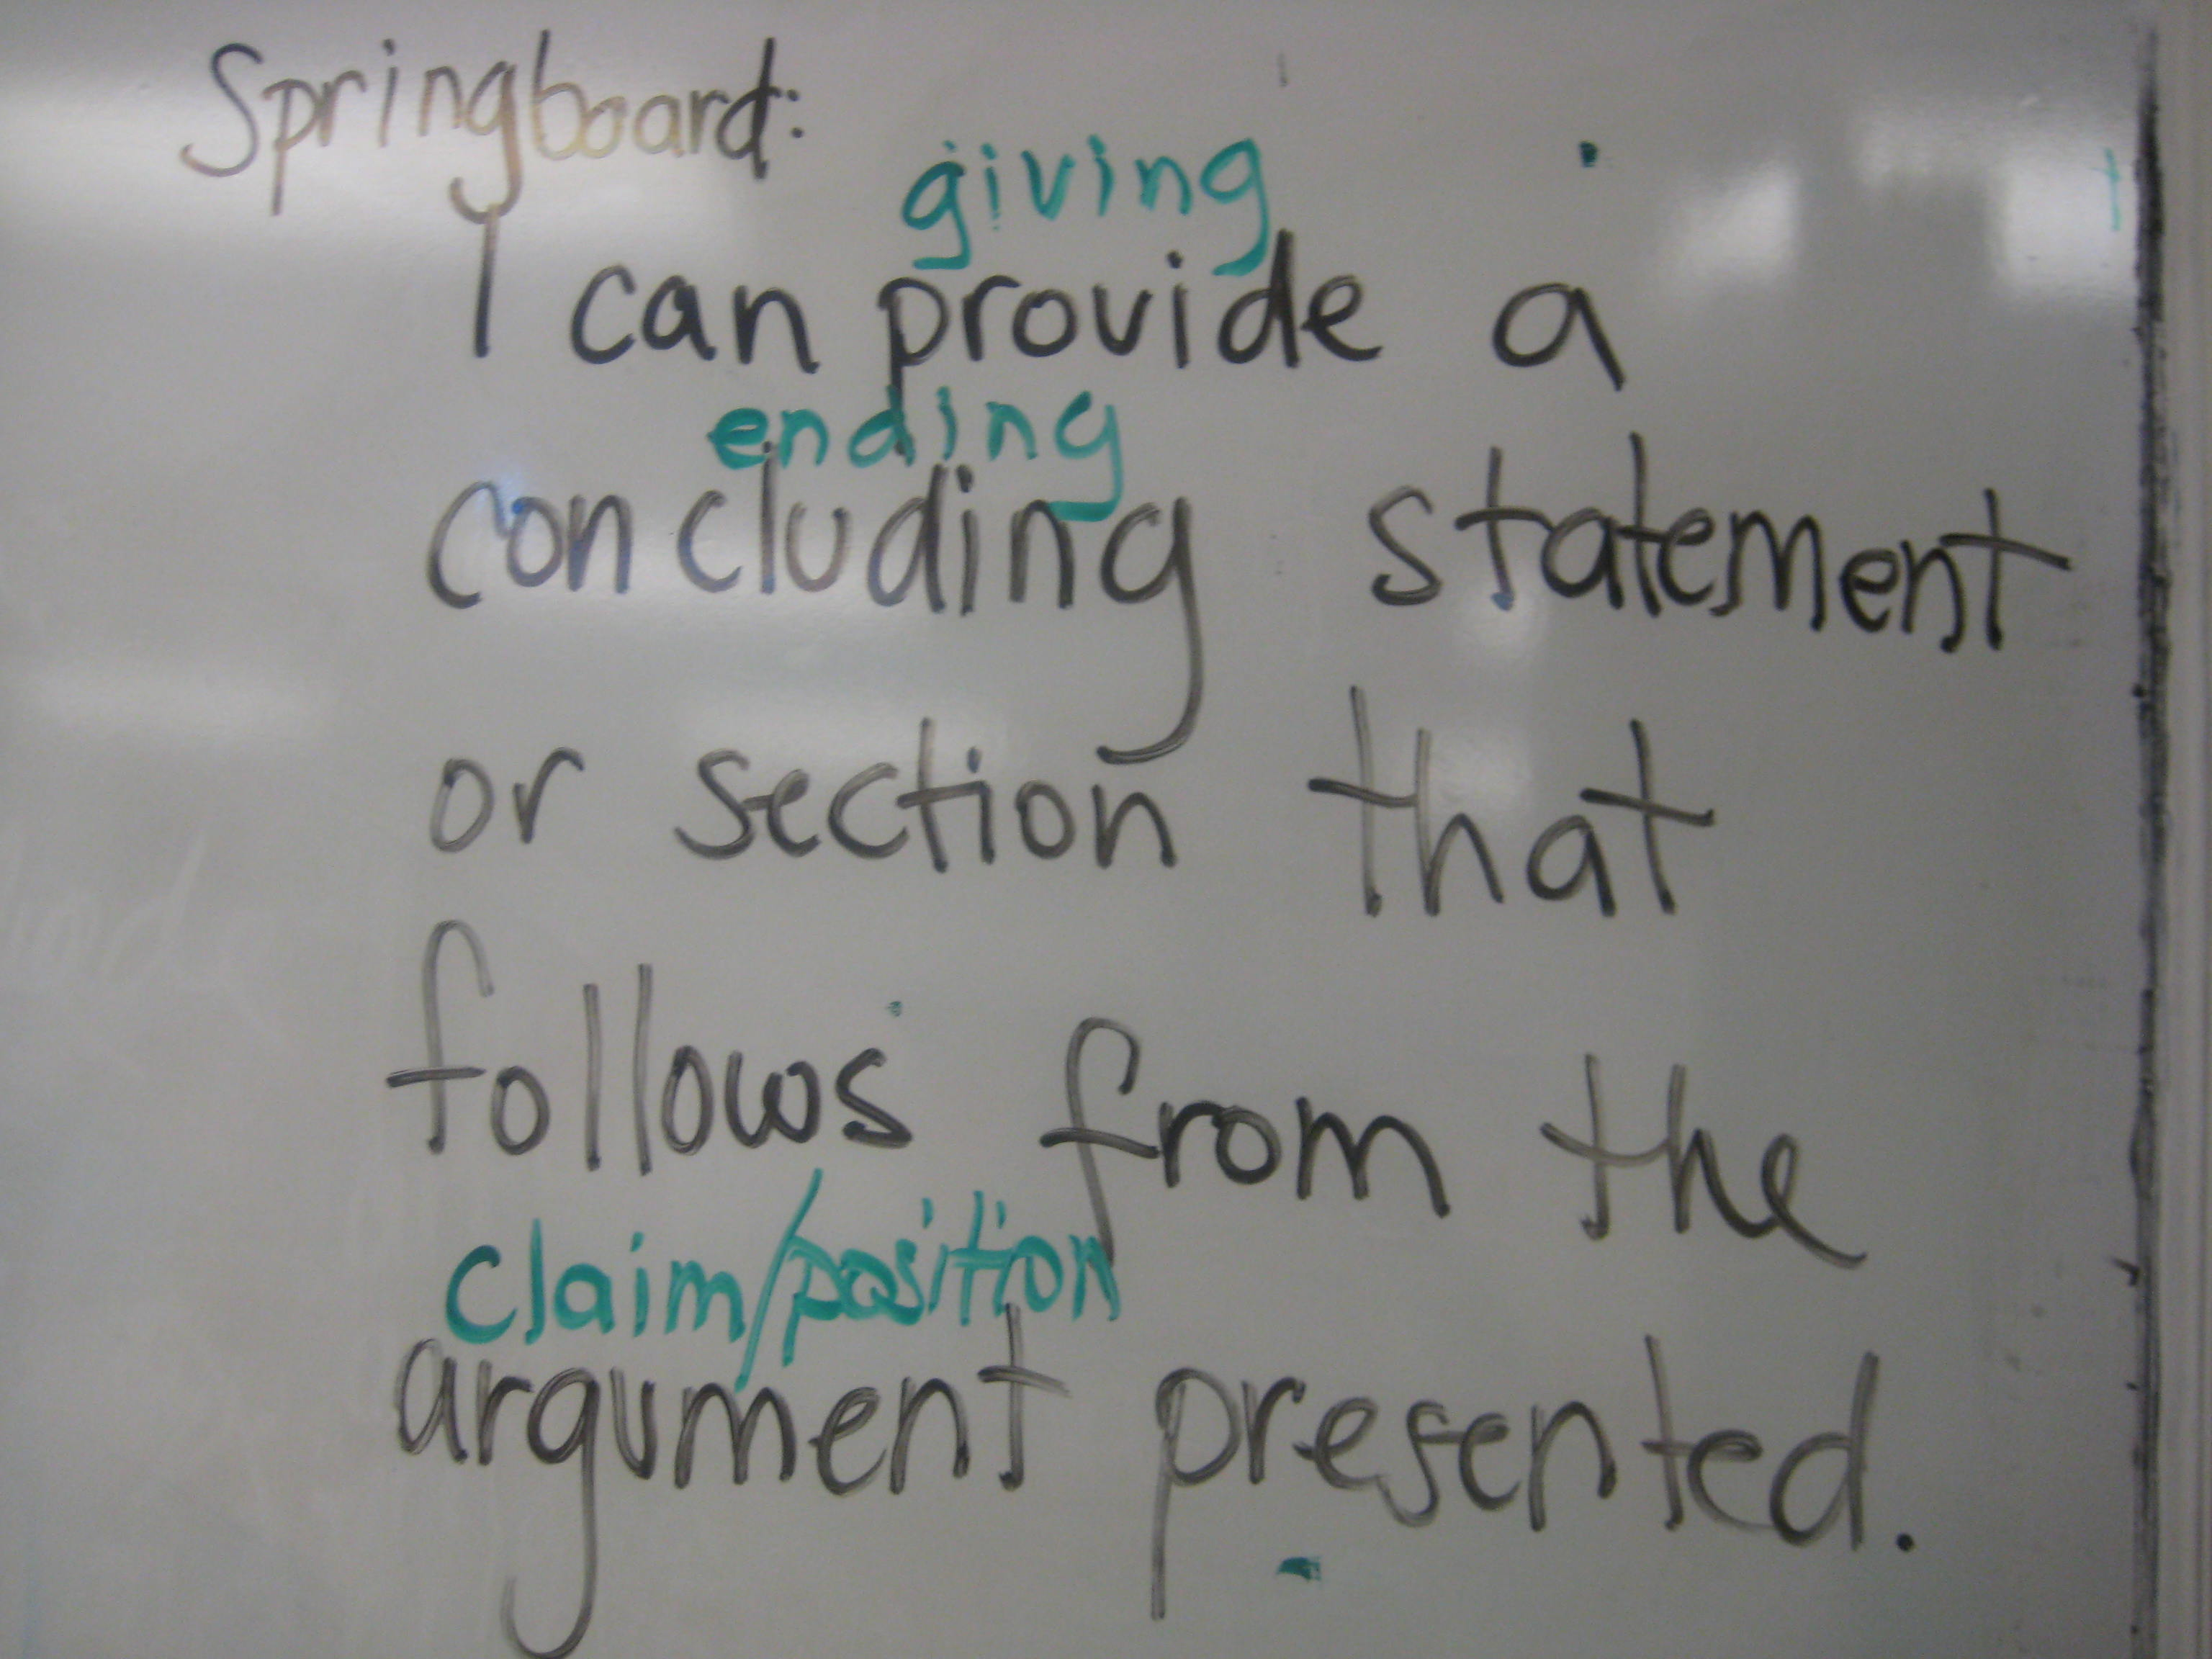 Springboard:
giving
I can provide a
ending
concluding statement
or section that
follows from the
claim/position
argument presented.